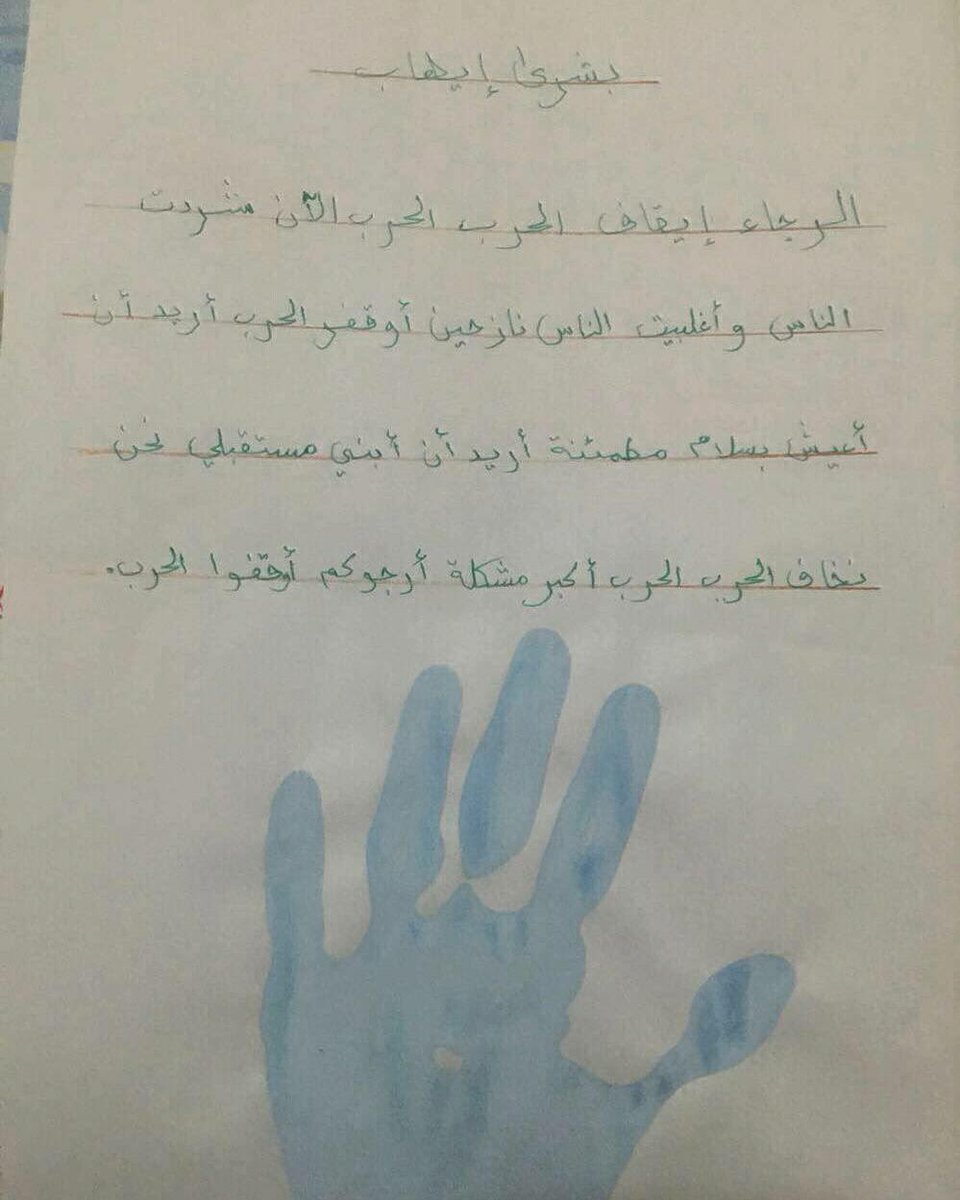 بشرى إيهاب
الرجاء إيقاف الحرب الحرب الآن مشردت
الناس وأغلبيت الناس نازحين أوقفو الحرب أريد أن
أعيش بسلام مطمئنة أريد أن أبني مستقبلي نحن
نخاف الحرب الحرب أكبر مشكلة أرجوكم أوقفوا الحرب.